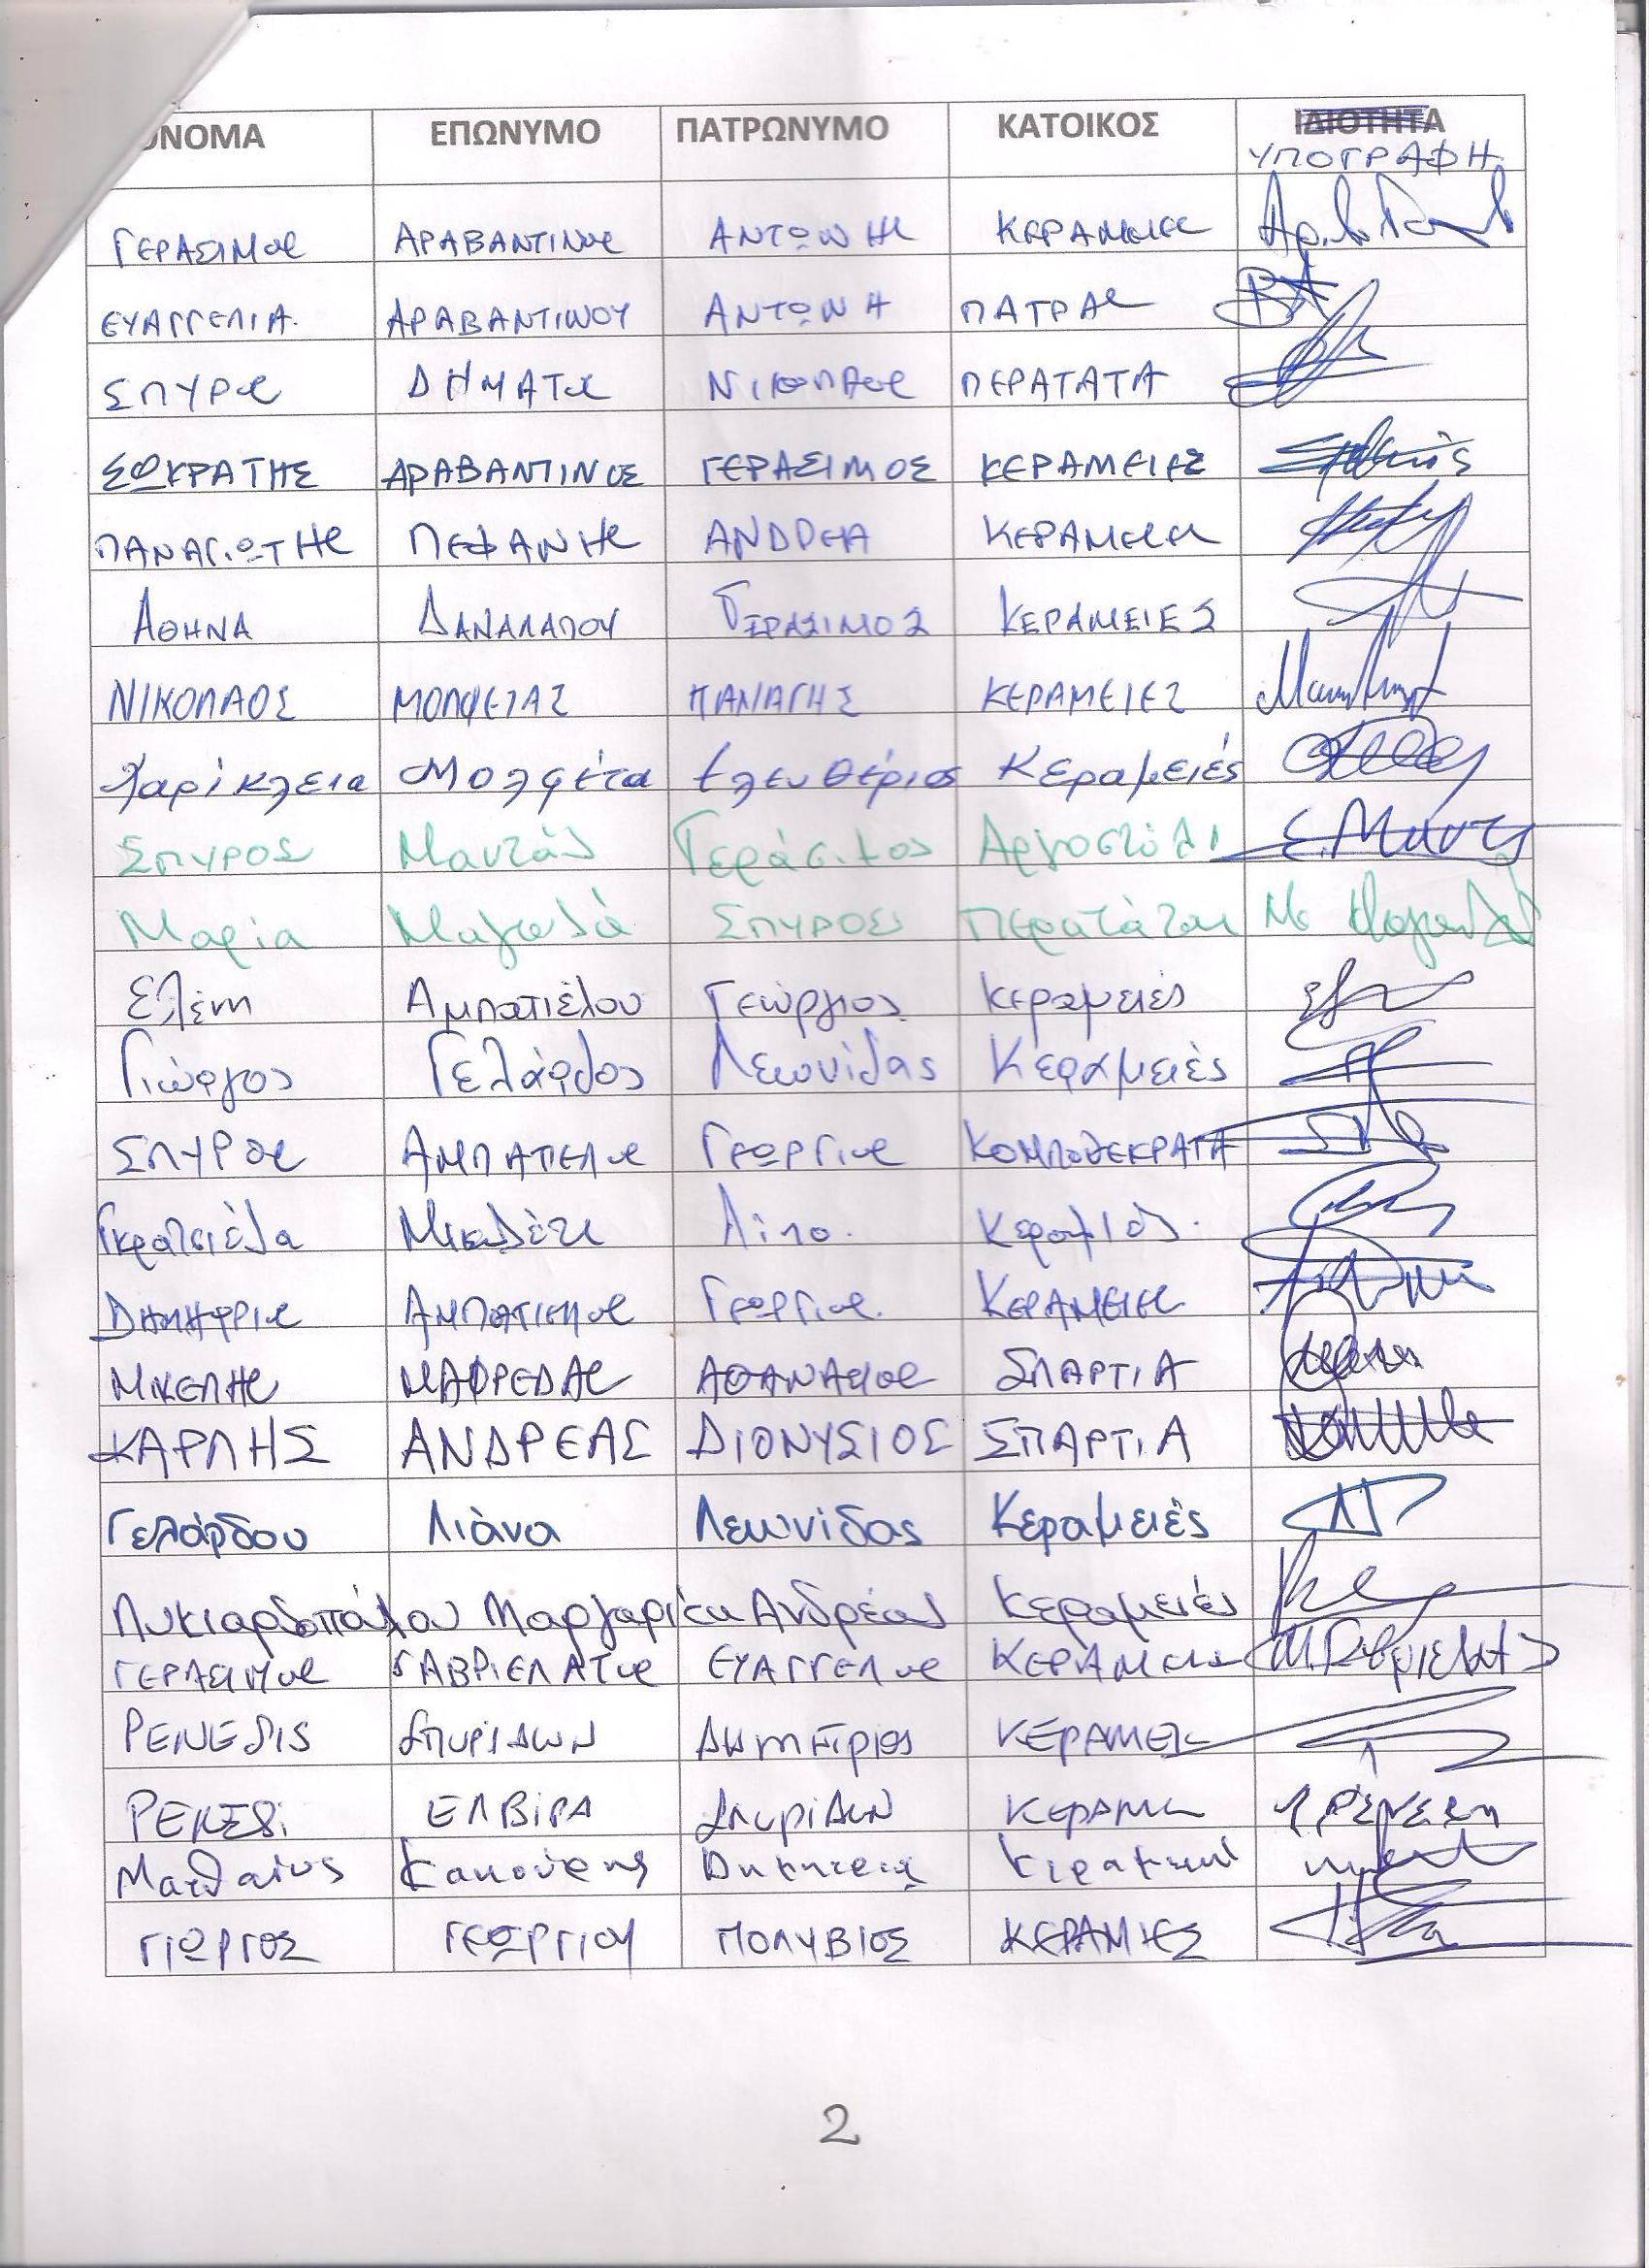 ΟΝΟΜΑ ΕΠΩΝΥΜΟ ΠΑΤΡΩΝΥΜΟ ΚΑΤΟΙΚΟΣ ΙΔΙΟΤΗΤΑ
ΥΠΟΓΡΑΦΗ
ΓΕΡΑΣΙΜΟΣ ΑΡΑΒΑΝΤΙΝΟΣ ΑΝΤΩΝΗΣ ΚΕΡΑΜΕΙΕΣ
ΕΥΑΓΓΕΛΙΑ ΑΡΑΒΑΝΤΙΝΟΥ ΑΝΤΩΝΗ ΠΑΤΡΑΣ ΒΑ
ΣΠΥΡΟΣ ΔΗΜΑΤΟΣ ΝΙΚΟΛΑΟΣ ΠΕΡΑΤΑΤΑ
ΣΩΚΡΑΤΗΣ ΑΡΑΒΑΝΤΙΝΟΣ ΓΕΡΑΣΙΜΟΣ ΚΕΡΑΜΕΙΕΣ
ΠΑΝΑΓΙΩΤΗΣ ΠΕΦΑΝΗΣ ΑΝΔΡΕΑ ΚΕΡΑΜΕΙΕΣ
ΑΘΗΝΑ ΔΑΝΑΛΑΤΟΥ ΓΕΡΑΣΙΜΟΣ ΚΕΡΑΜΕΙΕΣ
ΝΙΚΟΛΑΟΣ ΜΟΛΦΕΤΑΣ ΠΑΝΑΓΗΣ ΚΕΡΑΜΕΙΕΣ
Χαρίκλεια Μολφέτα Ελευθέριος Κεραμειές
ΣΠΥΡΟΣ Μαντζάς Γεράσιμος Αργοστόλι
Μαρία Μαγουλά ΣΠΥΡΟΣ Περατάτα
Ελένη Αμπατιέλου Γεώργιος Κεραμειές
Γιώργος Γελάρδος Λεωνίδας Κεραμειές
ΣΠΥΡΟΣ ΑΜΠΑΤΙΕΛΟΣ ΓΕΩΡΓΙΟΣ ΚΟΜΠΟΘΕΚΡΑΤΑ
Γκρατσιέλα Λίνο
ΔΗΜΗΤΡΙΟΣ ΑΜΠΑΤΙΕΛΟΣ ΓΕΩΡΓΙΟΣ ΚΕΡΑΜΕΙΕΣ
ΜΙΚΕΛΗΣ ΜΑΦΡΕΔΑΣ ΑΘΑΝΑΣΙΟΣ ΣΠΑΡΤΙΑ
ΚΑΡΛΗΣ ΑΝΔΡΕΑΣ ΔΙΟΝΥΣΙΟΣ ΣΠΑΡΤΙΑ
Γελάρδου Λιάνα Λεωνίδας Κεραμειές
Λυκιαρδοπούλου Μαργαρίτα Ανδρέας Κεραμειές
ΓΕΡΑΣΙΜΟΣ ΓΑΒΡΙΕΛΑΤΟΣ ΕΥΑΓΓΕΛΟΣ ΚΕΡΑΜΕΙΕΣ
ΡΕΝΕSIS ΣΠΥΡΙΔΩΝ Δημήτριος ΚΕΡΑΜΕΙΕΣ
ΡΕΝΕSI ΕΛΒΙΡΑ Σπυρίδων
Ματθαίος Κακούρης Δημητριος
ΓΙΩΡΓΟΣ ΓΕΩΡΓΙΟΥ ΠΟΛΥΒΙΟΣ ΚΕΡΑΜΙΕΣ
2